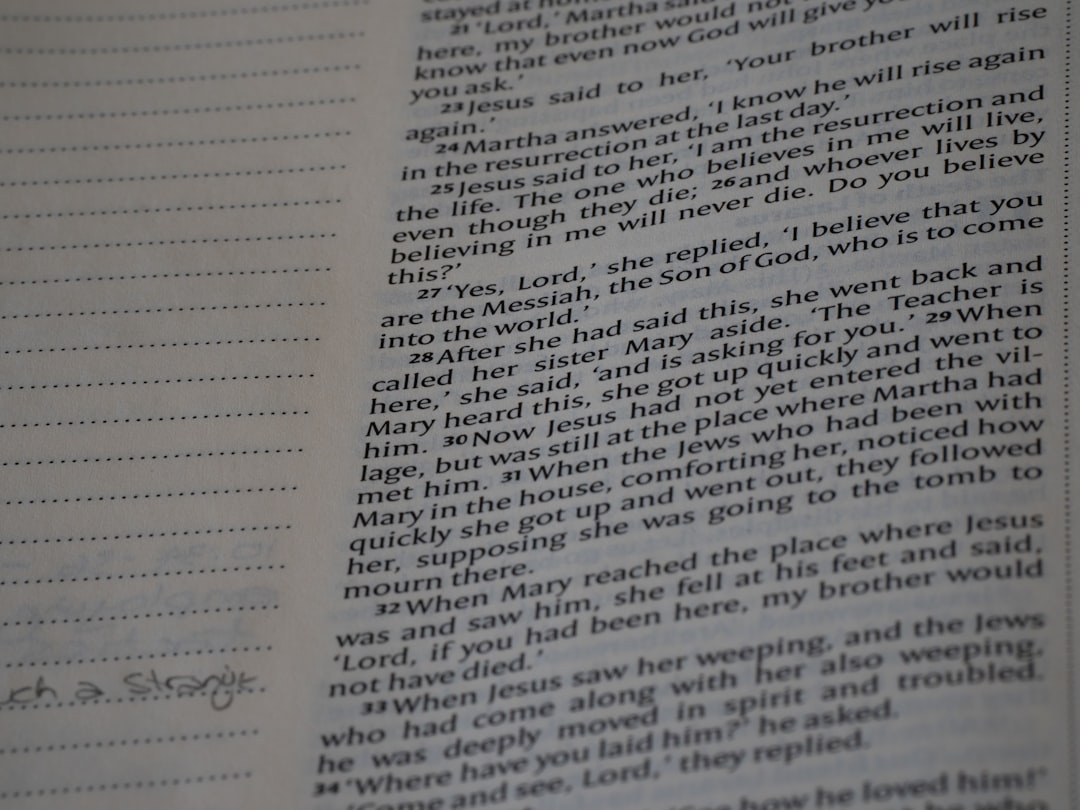 stayed at home.
21 ‘Lord,’ Martha said
here, my brother would not
know that even now God will give
you ask.’
23 Jesus said to her, ‘Your brother will rise
again.’
24 Martha answered, ‘I know he will rise again
in the resurrection at the last day.’
25 Jesus said to her, ‘I am the resurrection and
the life. The one who believes in me will live,
even though they die; 26 and whoever lives by
believing in me will never die. Do you believe
this?’
27 ‘Yes, Lord,’ she replied, ‘I believe that you
are the Messiah, the Son of God, who is to come
into the world.’
28 After she had said this, she went back and
called her sister Mary aside. ‘The Teacher is
here,’ she said, ‘and is asking for you.’ 29 When
Mary heard this, she got up quickly and went to
him. 30 Now Jesus had not yet entered the vil-
lage, but was still at the place where Martha had
met him. 31 When the Jews who had been with
Mary in the house, comforting her, noticed how
quickly she got up and went out, they followed
her, supposing she was going to the tomb to
mourn there.
32 When Mary reached the place where Jesus
was and saw him, she fell at his feet and said,
‘Lord, if you had been here, my brother would
not have died.’
33 When Jesus saw her weeping, and the Jews
who had come along with her also weeping,
he was deeply moved in spirit and troubled.
34 ‘Where have you laid him?’ he asked.
‘Come and see, Lord,’ they replied.
how he loved him!’
uch a